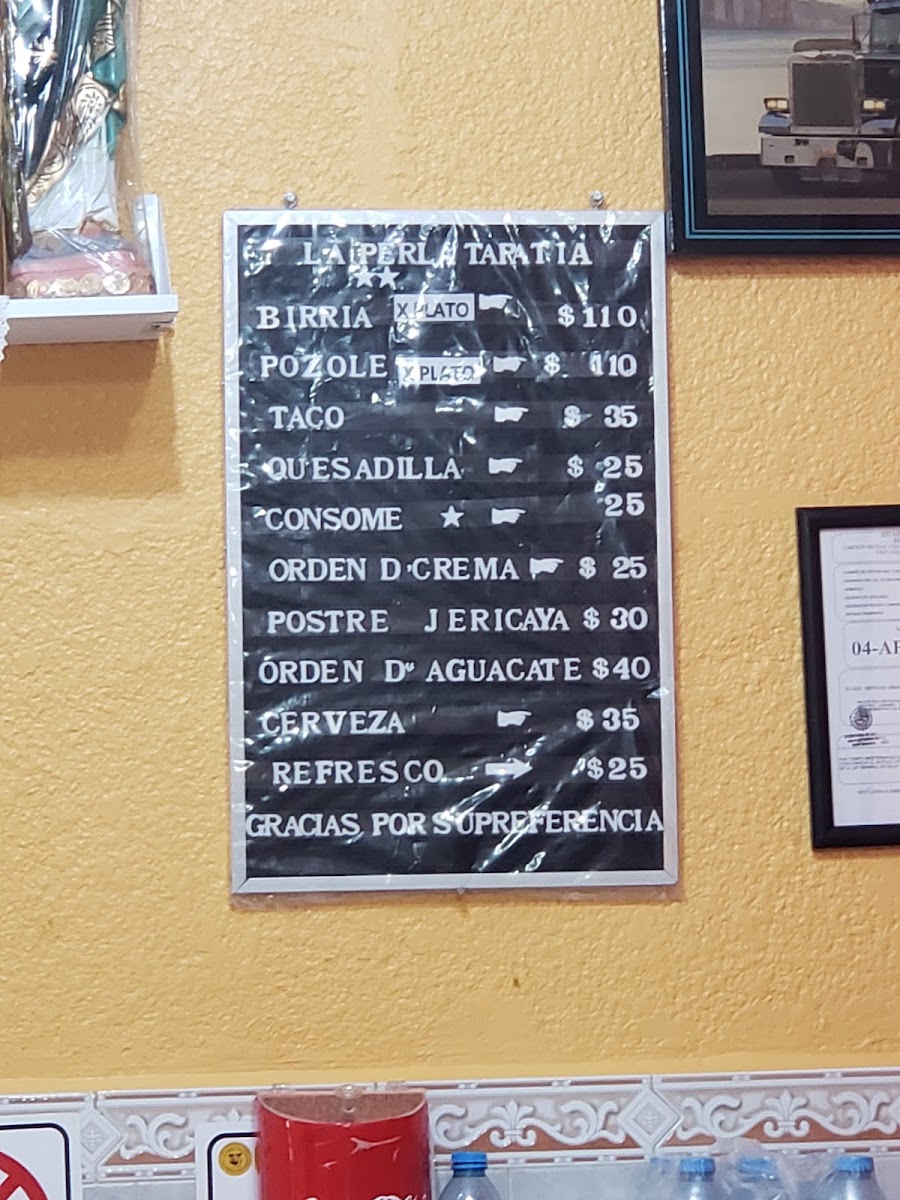 LA PERLA TAPATIA
BIRRIA X PLATO $110
POZOLE X PLATO $ 110
TACO $ 35
QUESADILLA $ 25
CONSOME 25
ORDEN D·CREMA $ 25
POSTRE JERICAYA $30
ORDEN D" AGUACATE $40
CERVEZA $35
REFRESCO $25
GRACIAS POR SUPREFERENCIA